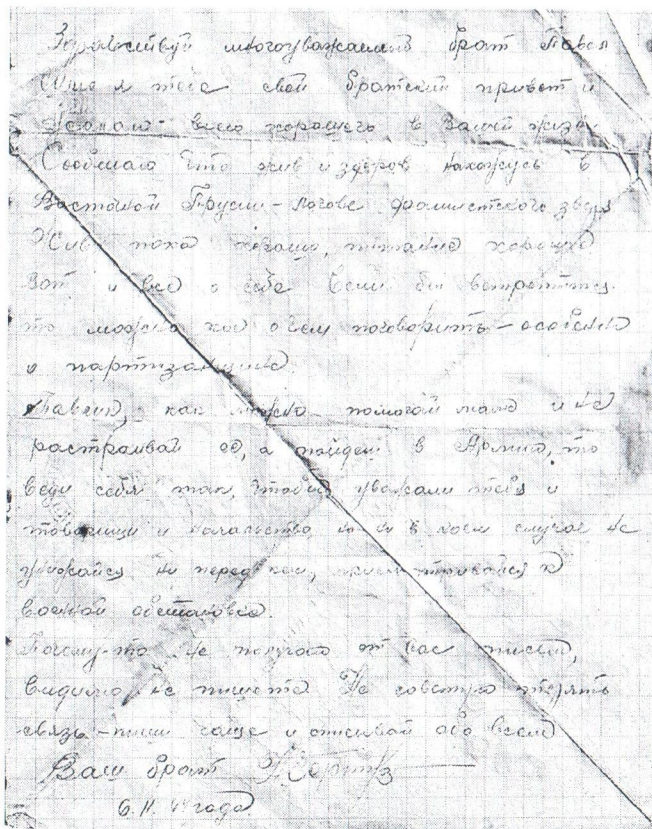 Здравствуй многоуважаемый брат Павел
Шлю я тебе свой братский привет и
желаю всего хорошего в Вашей жизн
Сообщаю что жив и здоров нахожусь в
Восточной Пруссии - логове фашистского зверя
Жив пока хорошо, питание хорошее
Вот и все о себе Если бы встретится
то можно кое о чем поговорить - особенно
о партизанщине
Павлик, как можно помогай маме и не
растраивай ее, а пойдеш в Армию, то
веди себя так, чтобы уважали тебя и
товарищи и начальство, но ни в коем случае не
унижайся ни перед кем, присматривайся к
военой обстановке.
Почему-то не получаю от вас писем,
видимо не пишете Не советую терять
связь - пиши чаще и описывай обо всем
Ваш брат
6.11.44 года